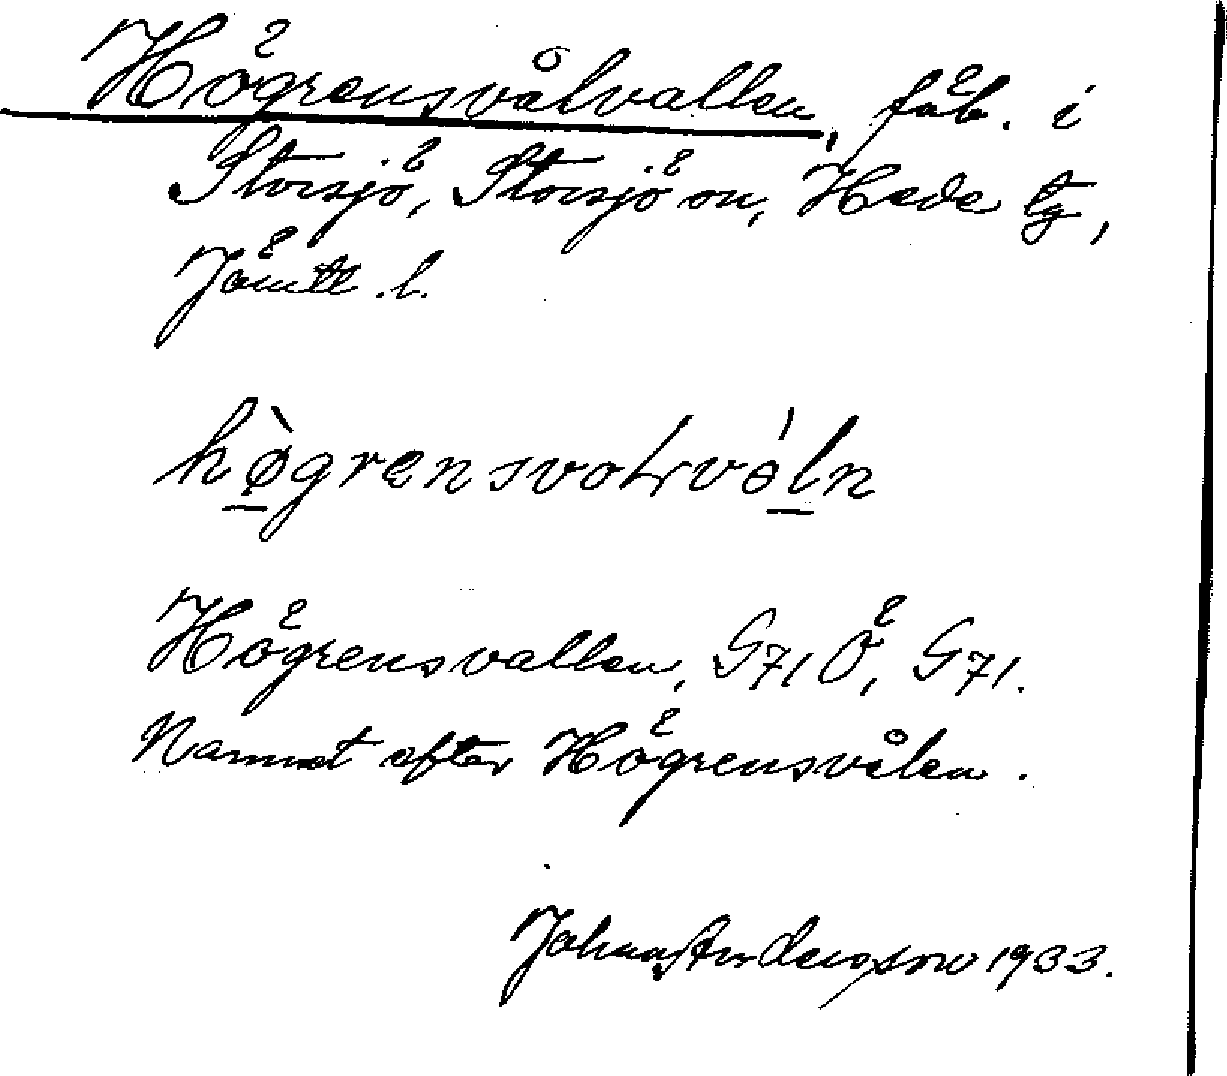 Högrensvålvallen, fäb. i
Storsjö, Storsjö sn, Hede tg,
Jämtl. l.
hø̀grensvoɫvóln
Högrensvallen, G71 Ö, G71.
Namnet efter Högrensvålen.
Johan Andersson 1933.